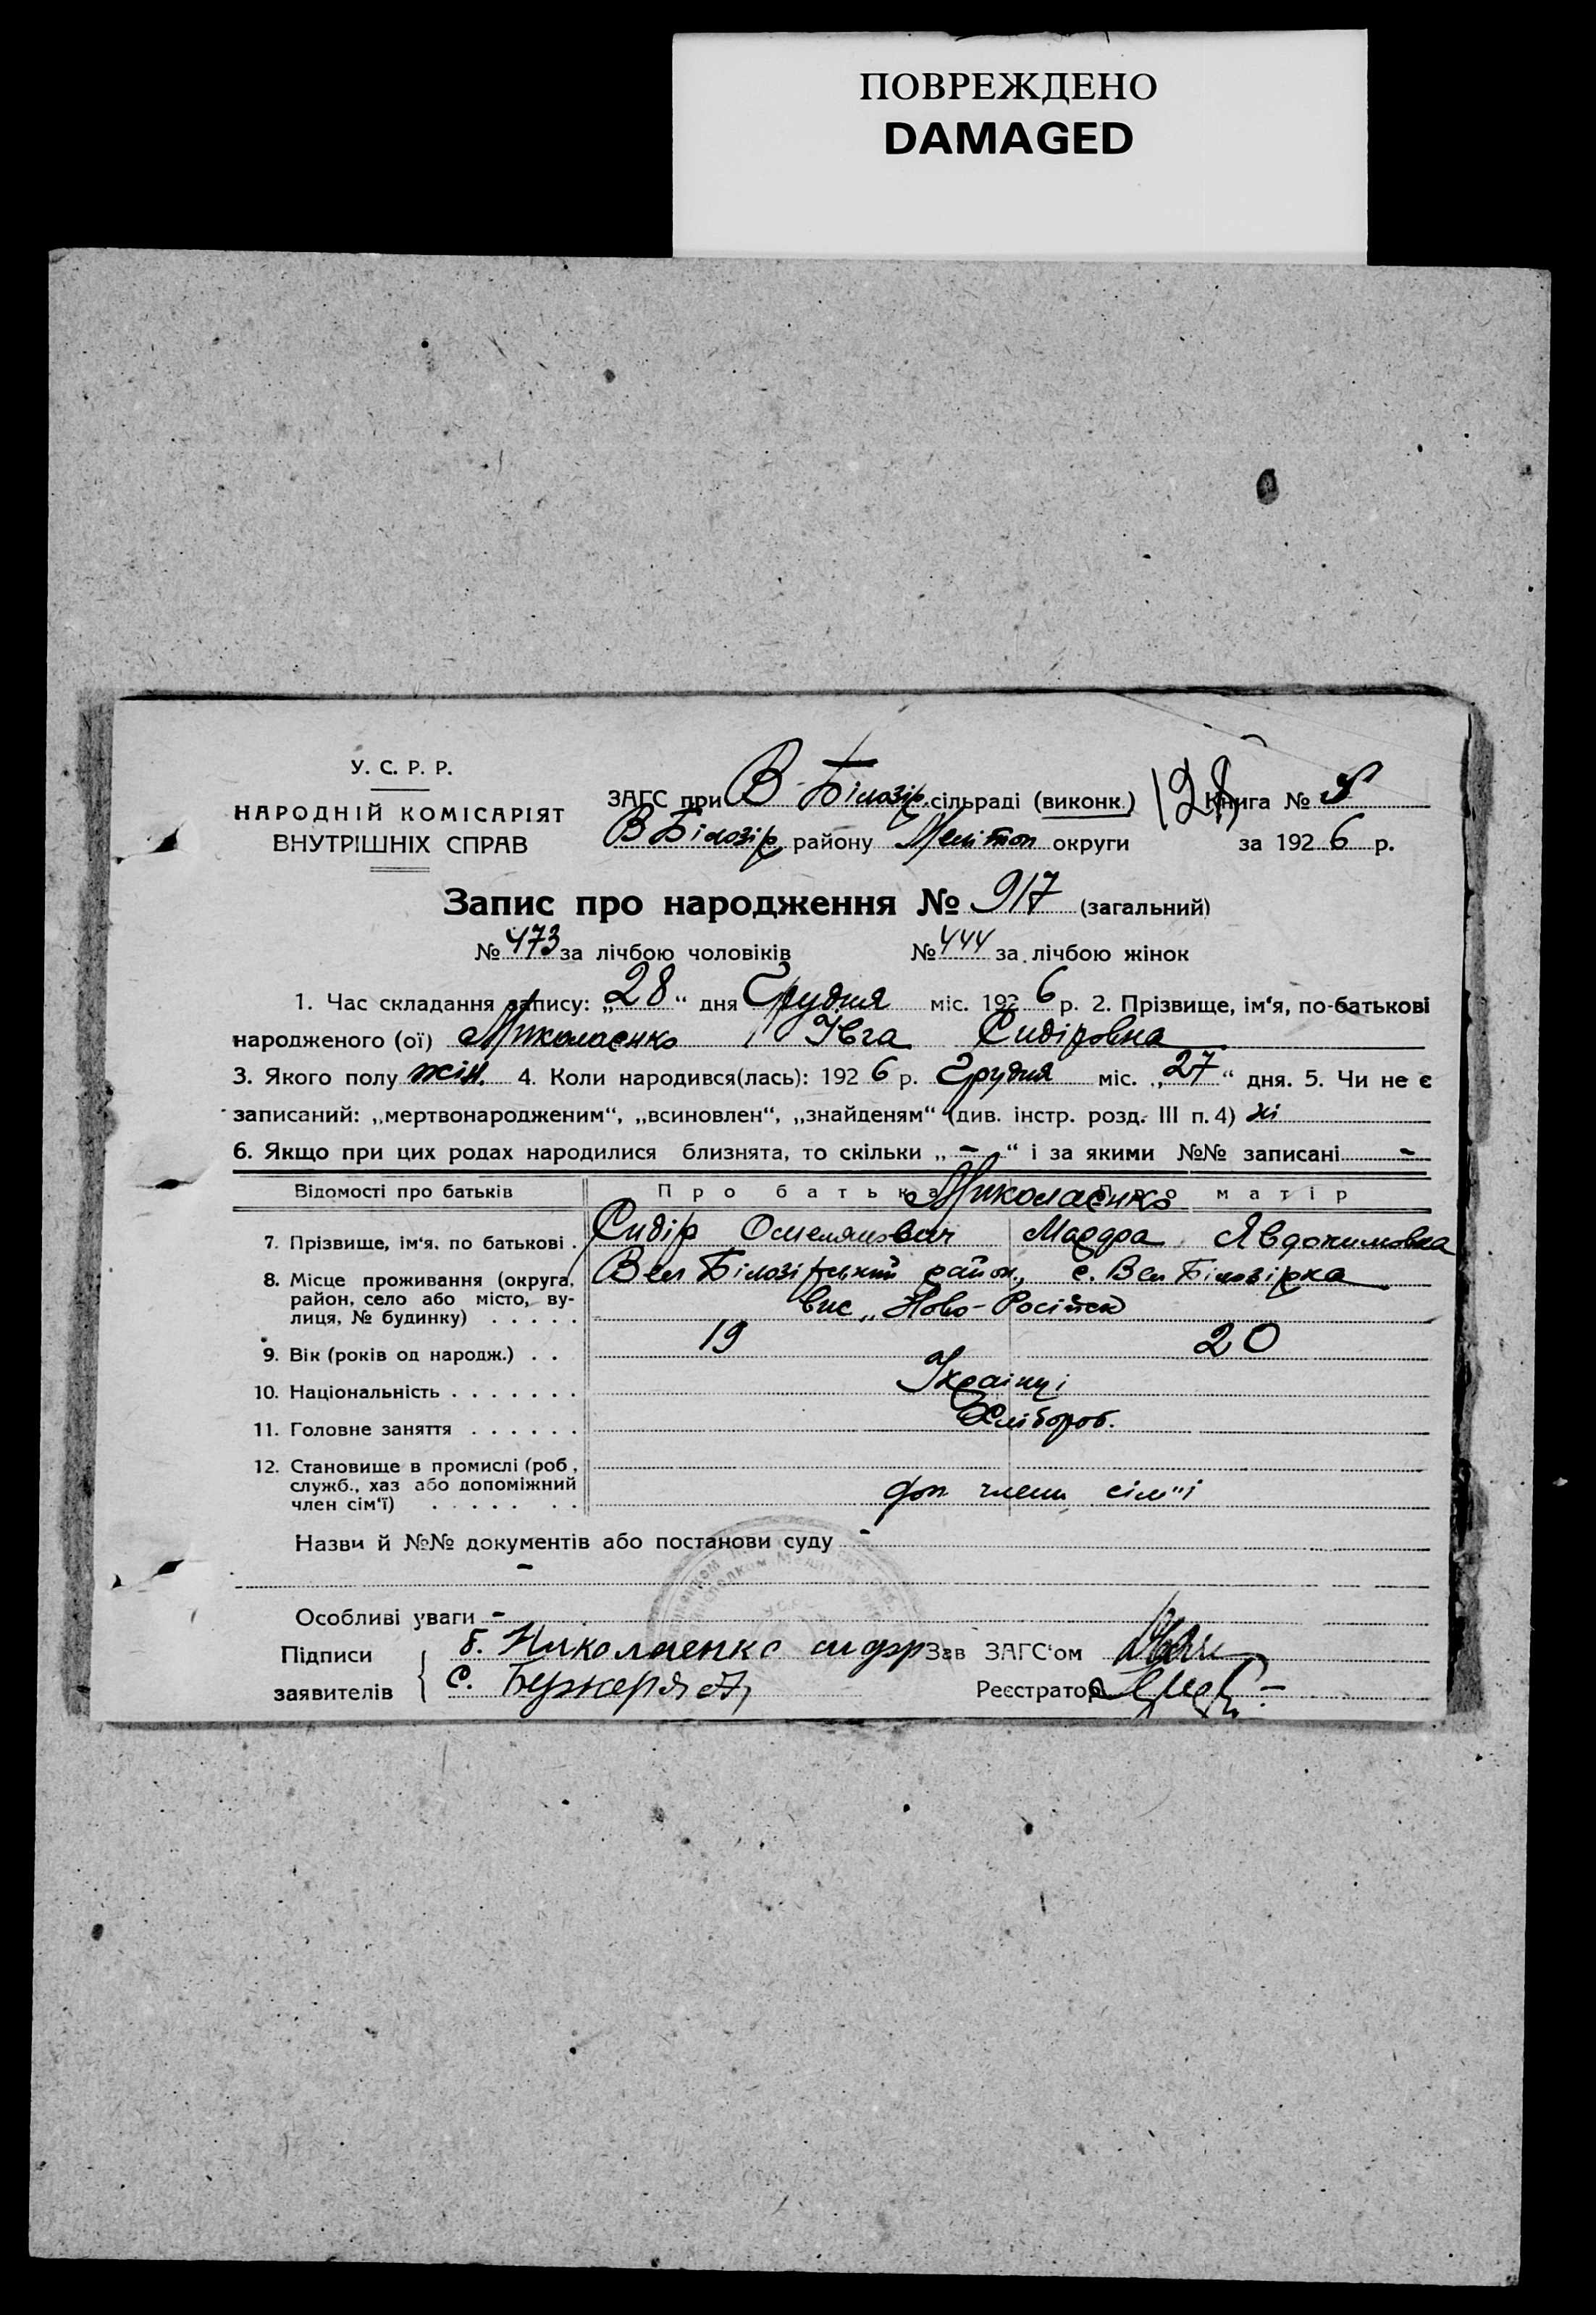 ПОВРЕЖДЕНО
DAMAGED
У. С. Р. Р.
НАРОДНІЙ КОМІСАРІЯТ
ВНУТРІШНІХ СПРАВ
ЗАГС при В Білозір. сільраді (виконк.) Книга №
В Білозір району Мелітоп округи за 1926 р.
Запис про народження № 917 (загальний)
№ 473 за лічбою чоловіків № 444 за лічбою жінок
1. Час складання запису: „28“ дня Грудня міс. 1926 р. 2. Прізвище, ім‘я, по-батькові
народженого (ої) Миколаєнко Івга Сидіровна
3. Якого полу жін. 4. Коли народився(лась): 1926 р. Грудня міс. „27“ дня. 5. Чи не є
записаний: „мертвонародженим“, „всиновлен“, „знайденям“ (див. інстр. розд. III п. 4) ні
6. Якщо при цих родах народилися близнята, то скільки „ - “ і за якими №№ записані -
Відомості про батьків Про батька Про матір
Миколаєнко
7. Прізвище, ім‘я, по батькові . Сидір Омелянович Мавдра Явдокимовна
8. Місце проживання (округа, район, село або місто, вулиця, № будинку) . . . . . Вел Білозірський район, с. Вел Білозірка
вис „Ново-Російск
9. Вік (років од народж.) . . 19 20
10. Національність . . . . . . . Українці
11. Головне заняття . . . . . . Хлібороб.
12. Становище в промислі (роб., служб., хаз або допоміжний член сім‘ї) . . . . . . . доп члени сім"ї
Назви й №№ документів або постанови суду -
-
Особливі уваги -
Підписи заявителів б. Николаенко Зав ЗАГС‘ом
с. Реєстратор